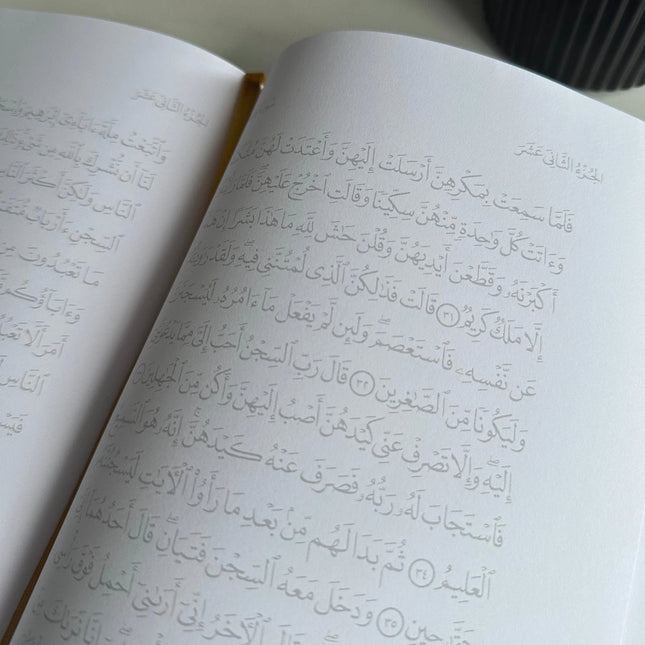 الجزء الثاني عشر
فَلَمَّا سَمِعَتْ بِمَكْرِهِنَّ أَرْسَلَتْ إِلَيْهِنَّ وَأَعْتَدَتْ لَهُنَّ
وَءَاتَتْ كُلَّ وَٰحِدَةٍ مِّنْهُنَّ سِكِّينًا وَقَالَتِ ٱخْرُجْ عَلَيْهِنَّ فَلَمَّا
أَكْبَرْنَهُۥ وَقَطَّعْنَ أَيْدِيَهُنَّ وَقُلْنَ حَٰشَ لِلَّهِ مَا هَٰذَا بَشَرًا إِنْ
إِلَّا مَلَكٌ كَرِيمٌ ٣١ قَالَتْ فَذَٰلِكُنَّ ٱلَّذِى لُمْتُنَّنِى فِيهِ وَلَقَدْ
عَن نَّفْسِهِۦ فَٱسْتَعْصَمَ وَلَئِن لَّمْ يَفْعَلْ مَا ءَامُرُهُۥ لَيُسْجَنَنَّ
وَلَيَكُونًا مِّنَ ٱلصَّٰغِرِينَ ٣٢ قَالَ رَبِّ ٱلسِّجْنُ أَحَبُّ إِلَىَّ مِمَّا
إِلَيْهِ وَإِلَّا تَصْرِفْ عَنِّى كَيْدَهُنَّ أَصْبُ إِلَيْهِنَّ وَأَكُن مِّنَ ٱلْجَٰهِلِينَ
فَٱسْتَجَابَ لَهُۥ رَبُّهُۥ فَصَرَفَ عَنْهُ كَيْدَهُنَّ إِنَّهُۥ هُوَ ٱلسَّمِيعُ
ٱلْعَلِيمُ ٣٤ ثُمَّ بَدَا لَهُم مِّنۢ بَعْدِ مَا رَأَوُا۟ ٱلْءَايَٰتِ لَيَسْجُنُنَّهُۥ
حِينٍ ٣٥ وَدَخَلَ مَعَهُ ٱلسِّجْنَ فَتَيَانِ قَالَ أَحَدُهُمَآ إِنِّىٓ
ٱلْءَاخَرُ إِنِّىٓ أَرَىٰنِىٓ أَحْمِلُ فَوْقَ
الجزء الثاني عشر
وَٱتَّبَعْتُ مِلَّةَ ءَابَآءِىٓ إِبْرَٰهِيمَ
لَنَآ أَن نُّشْرِكَ بِٱللَّهِ مِن شَىْءٍ
ٱلنَّاسِ وَلَٰكِنَّ أَكْثَرَ ٱلنَّاسِ
ٱلسِّجْنِ ءَأَرْبَابٌ
مَا تَعْبُدُونَ مِن
وَءَابَآؤُكُم
أَمَرَ أَلَّا
ٱلنَّاسِ